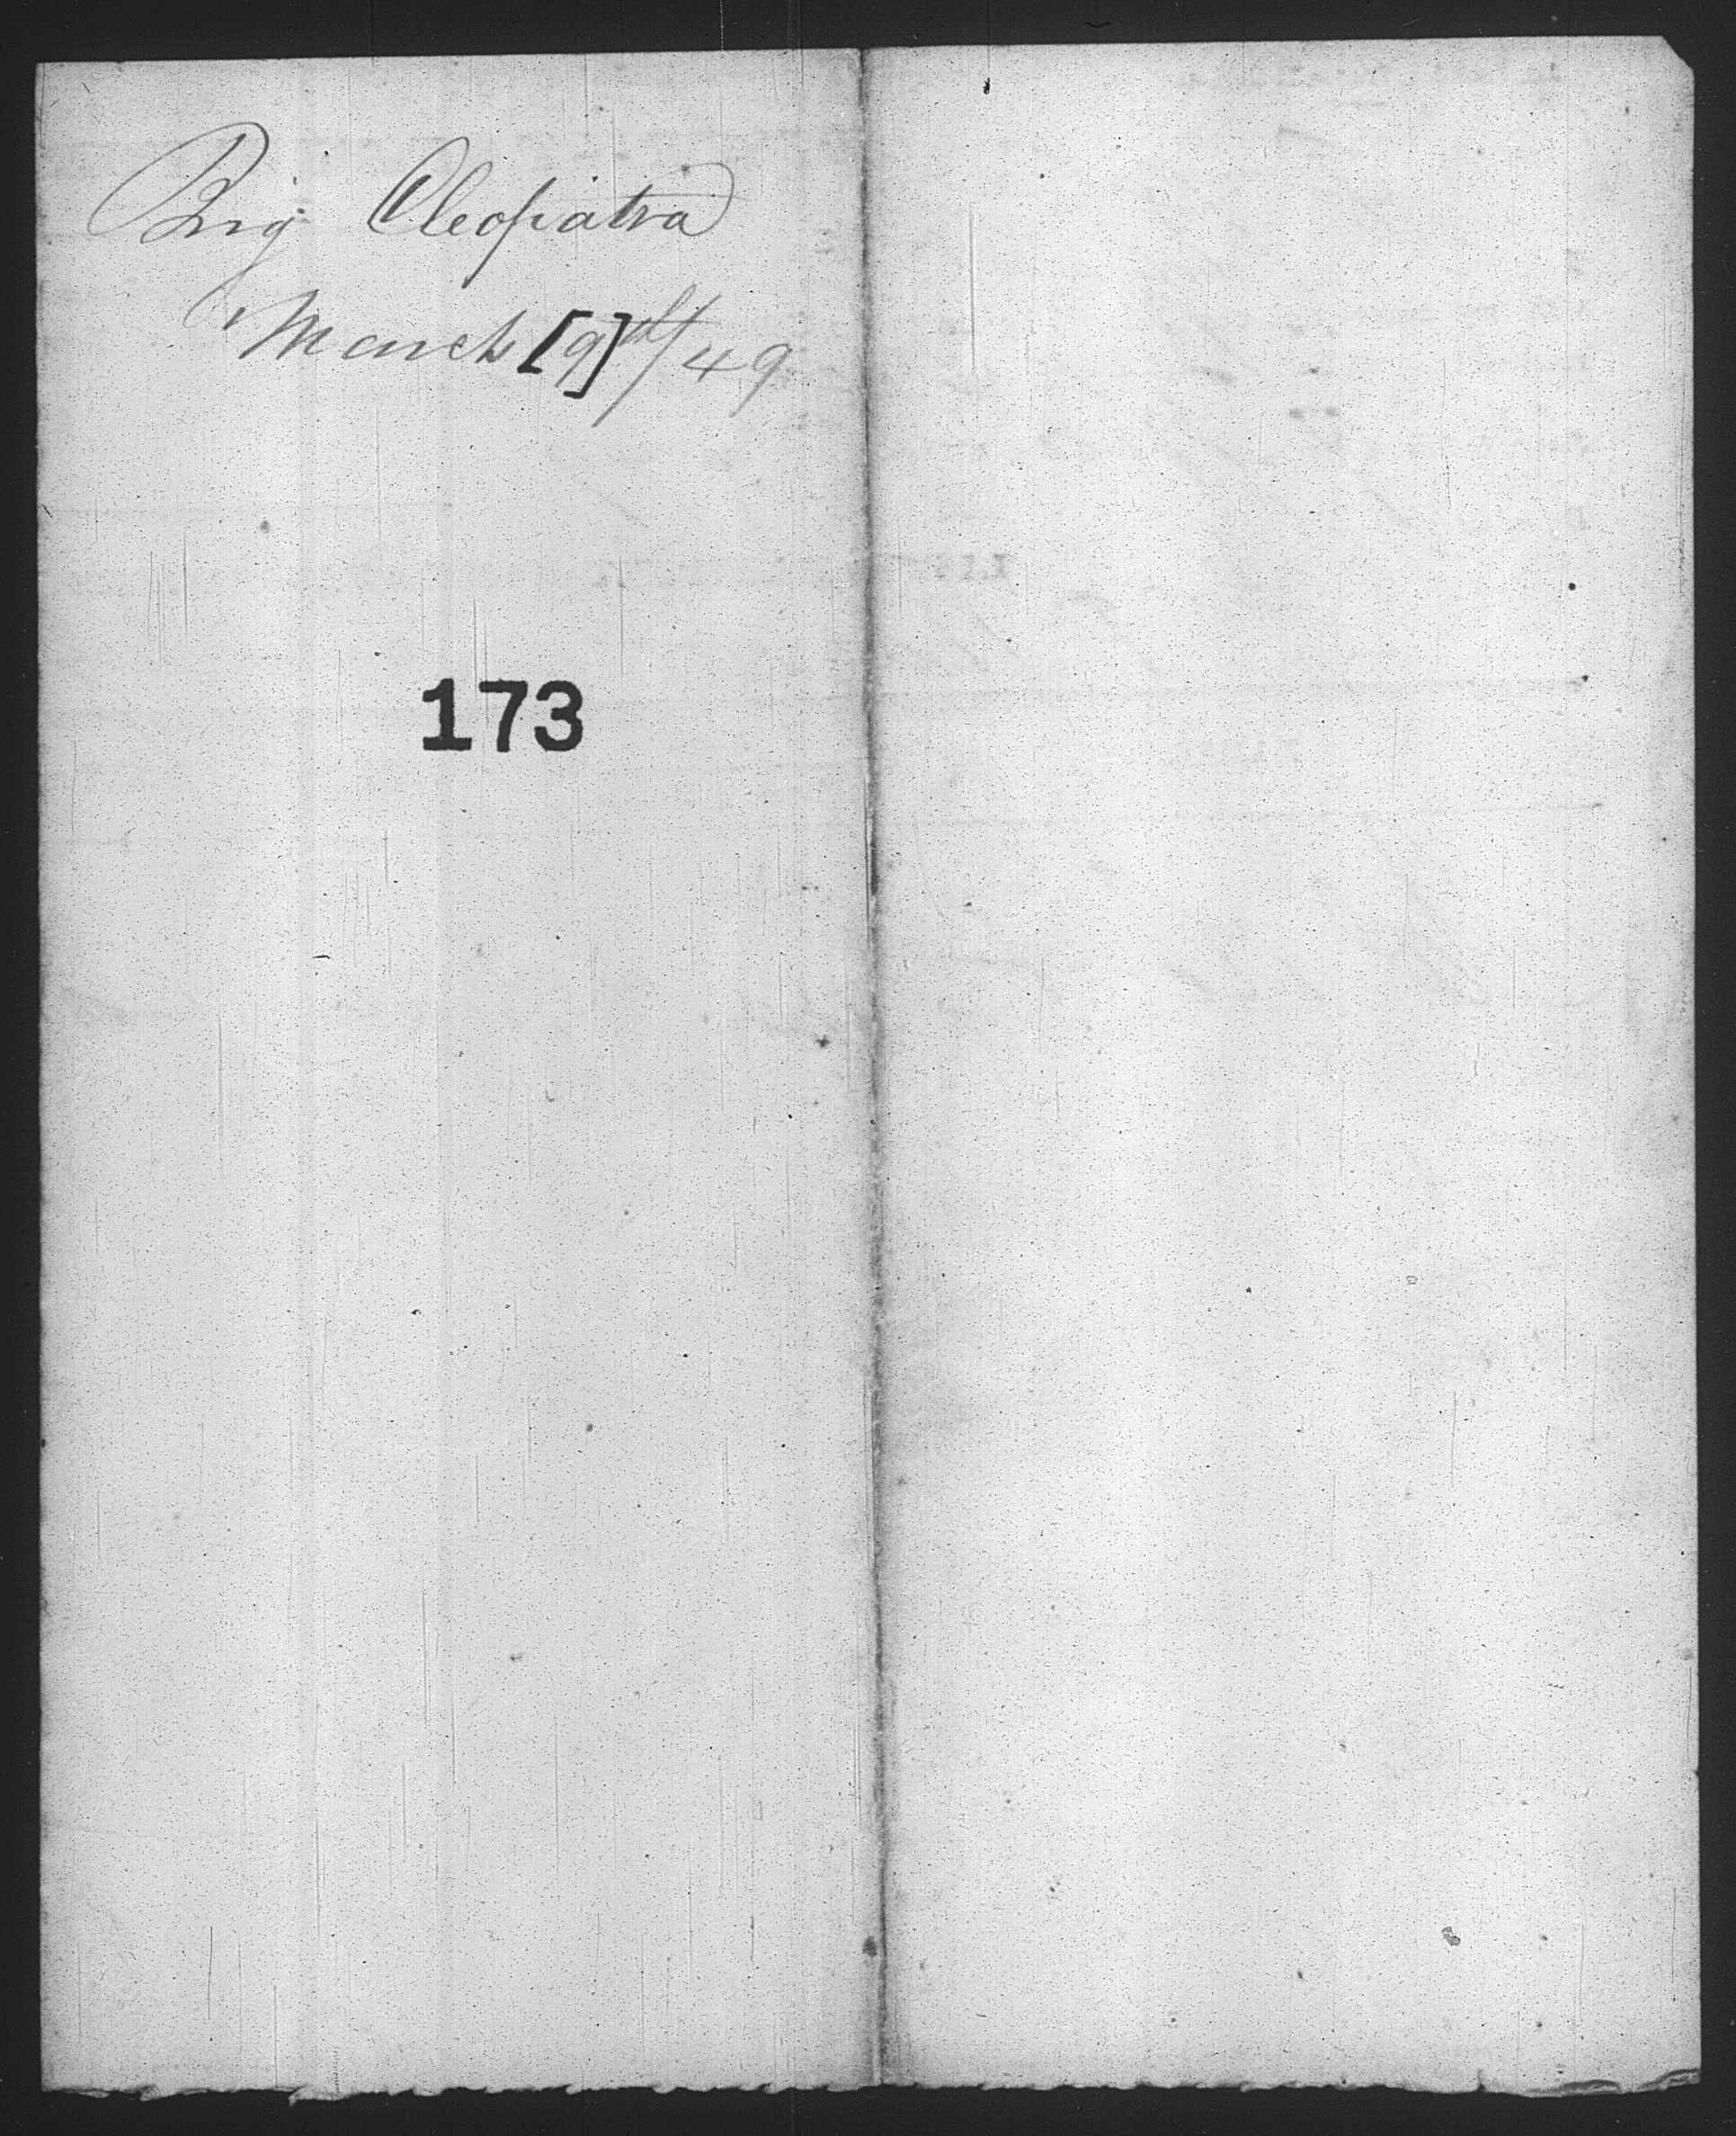 Brig Cleopatra
March [9]th/49
173